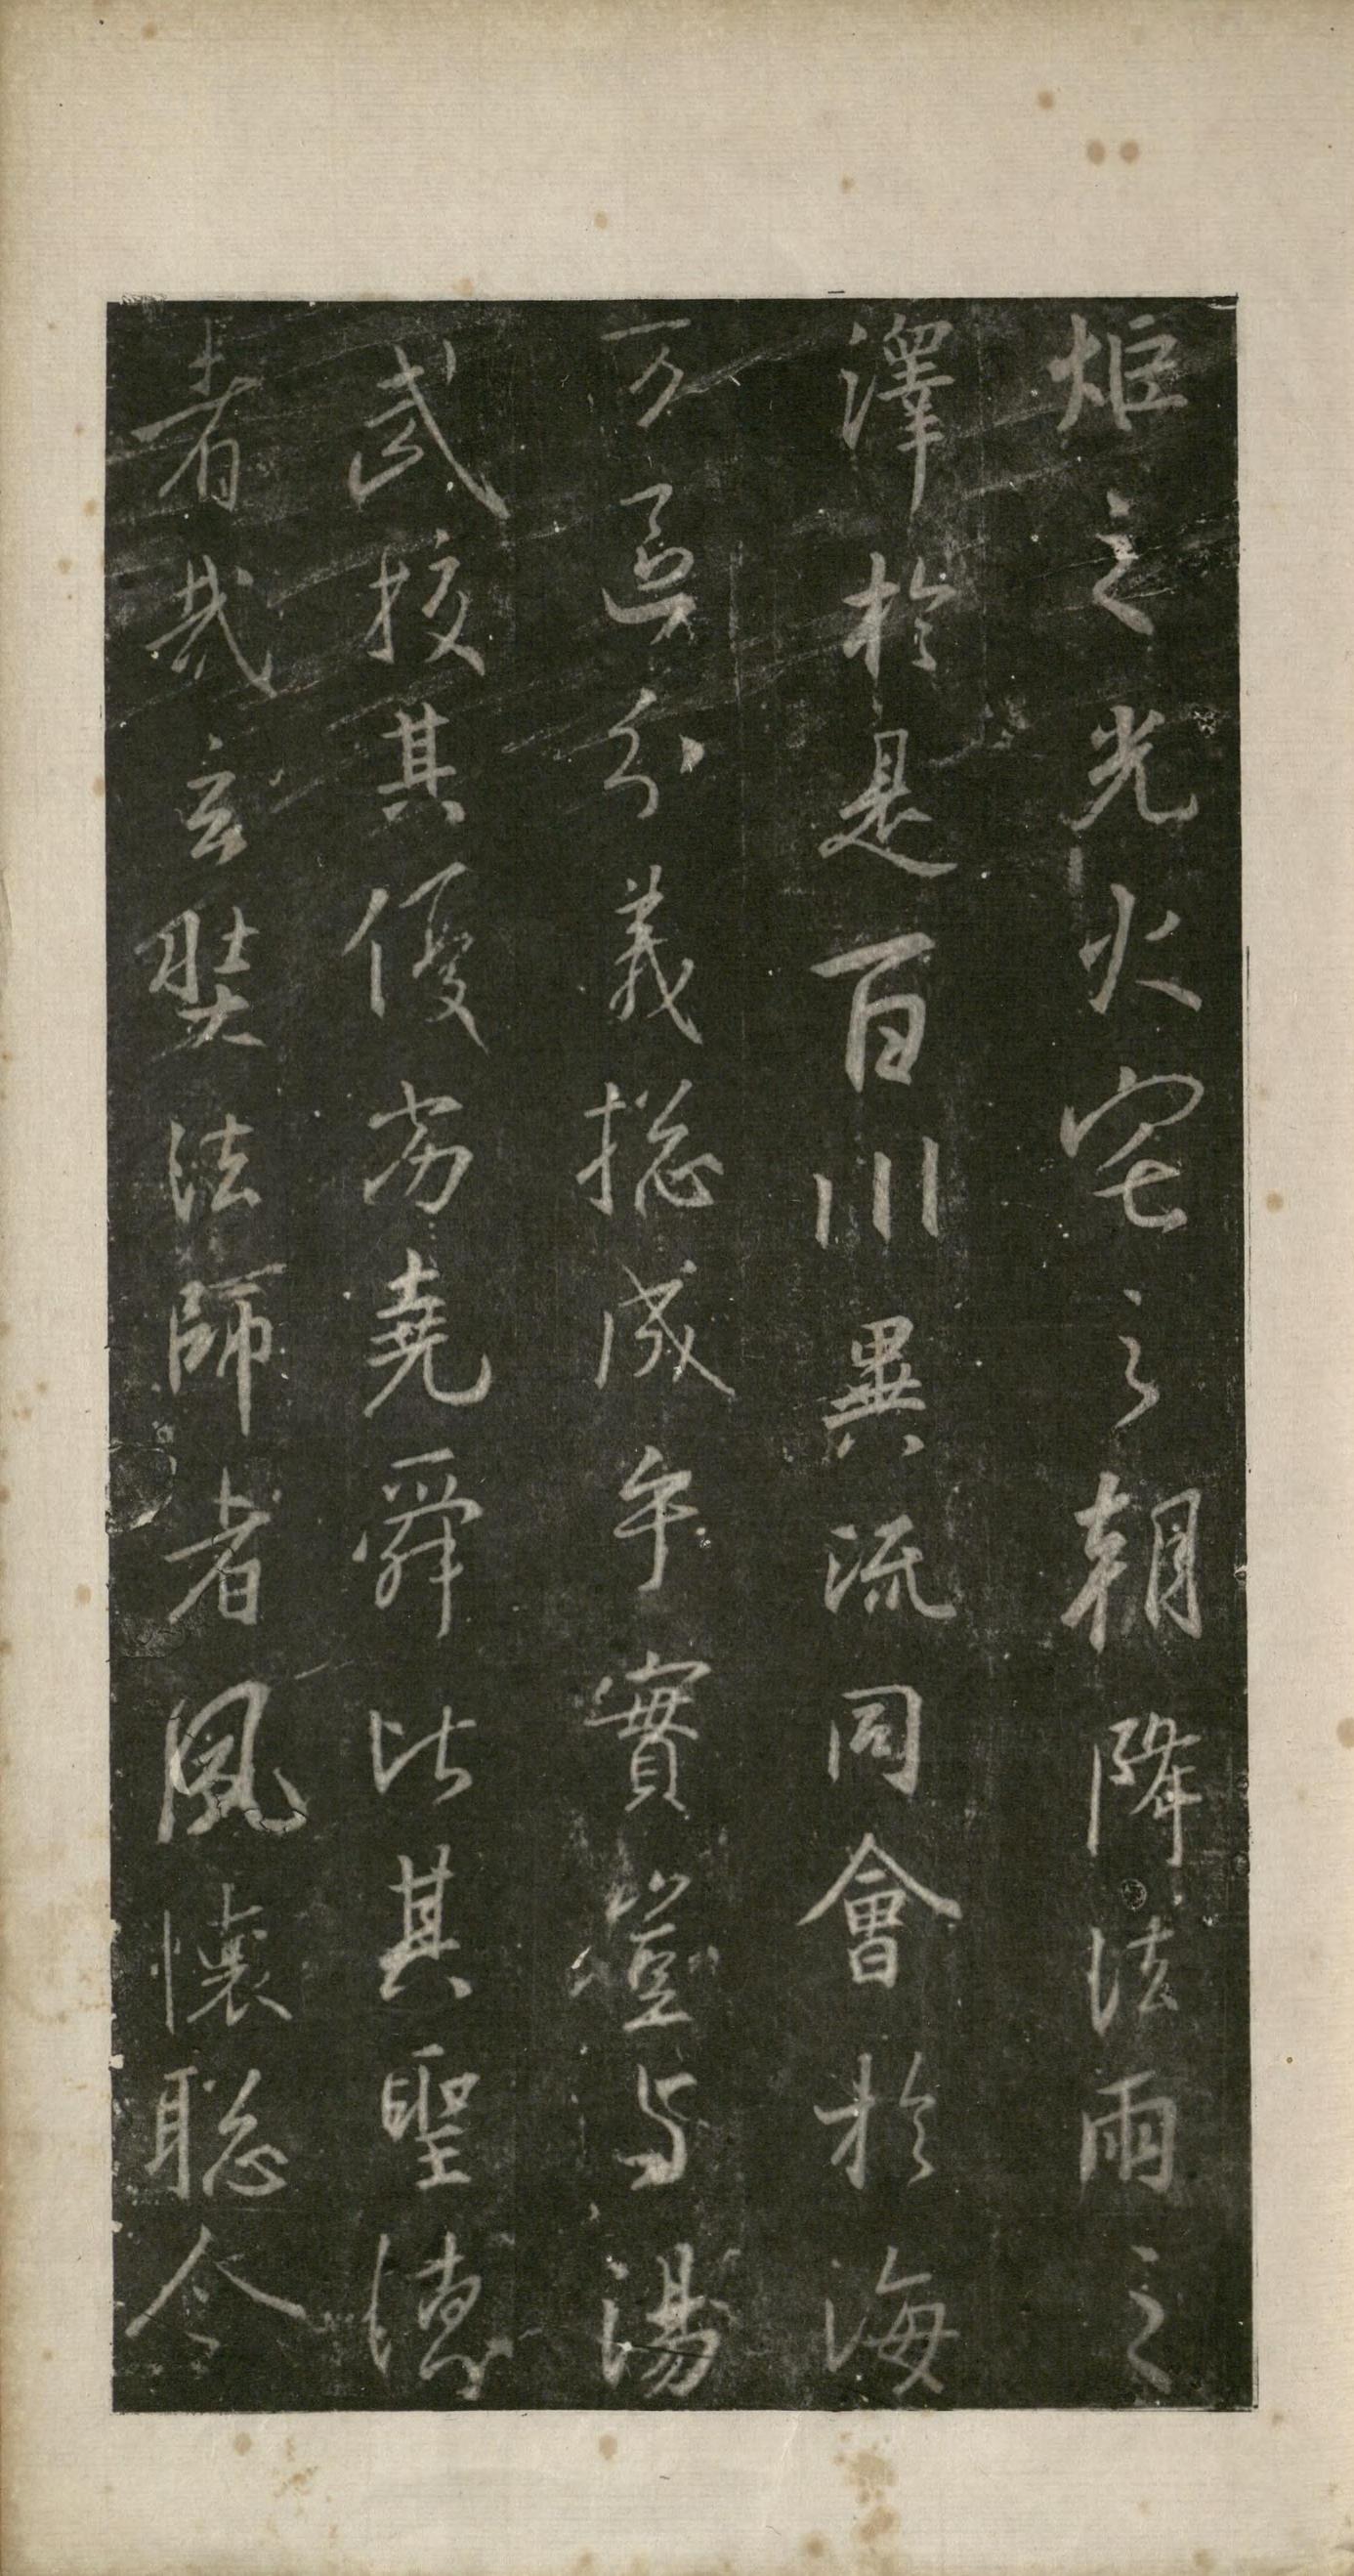 炬之光火宅之朝降法雨之
澤於是百川異流同會於海
万區分義揔成乎實豈与湯
武挍其優劣堯舜比其聖德
者哉玄奘法師者風懷聡令